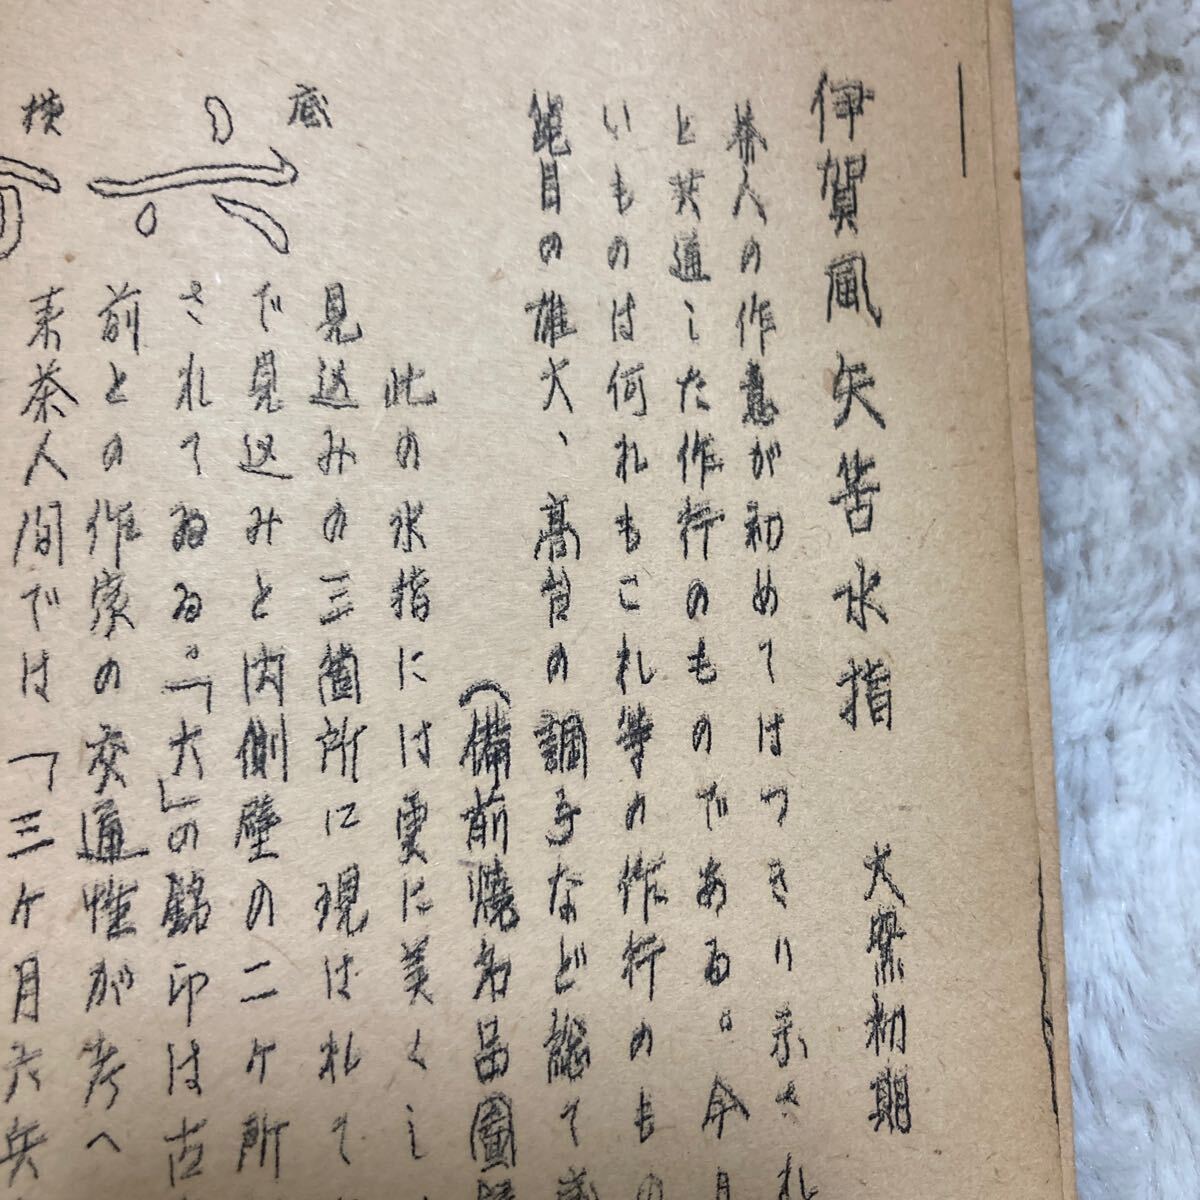 伊賀風矢筈水指　大桼初期
茶人の作意が初めてはつきり示され
と共通した作行のものである。今月
いものは何れもこれ等の作行のもの
箆目の雄大、高台の調子など総て
(備前燒名品圖
此の水指には更に美くし
見込みの三箇所に現はれて
で見込みと内側壁の二ケ所
されてゐる。「大」の銘印は古
前との作家の交通性が考へ
来茶人間では「三ケ月六兵
底
横